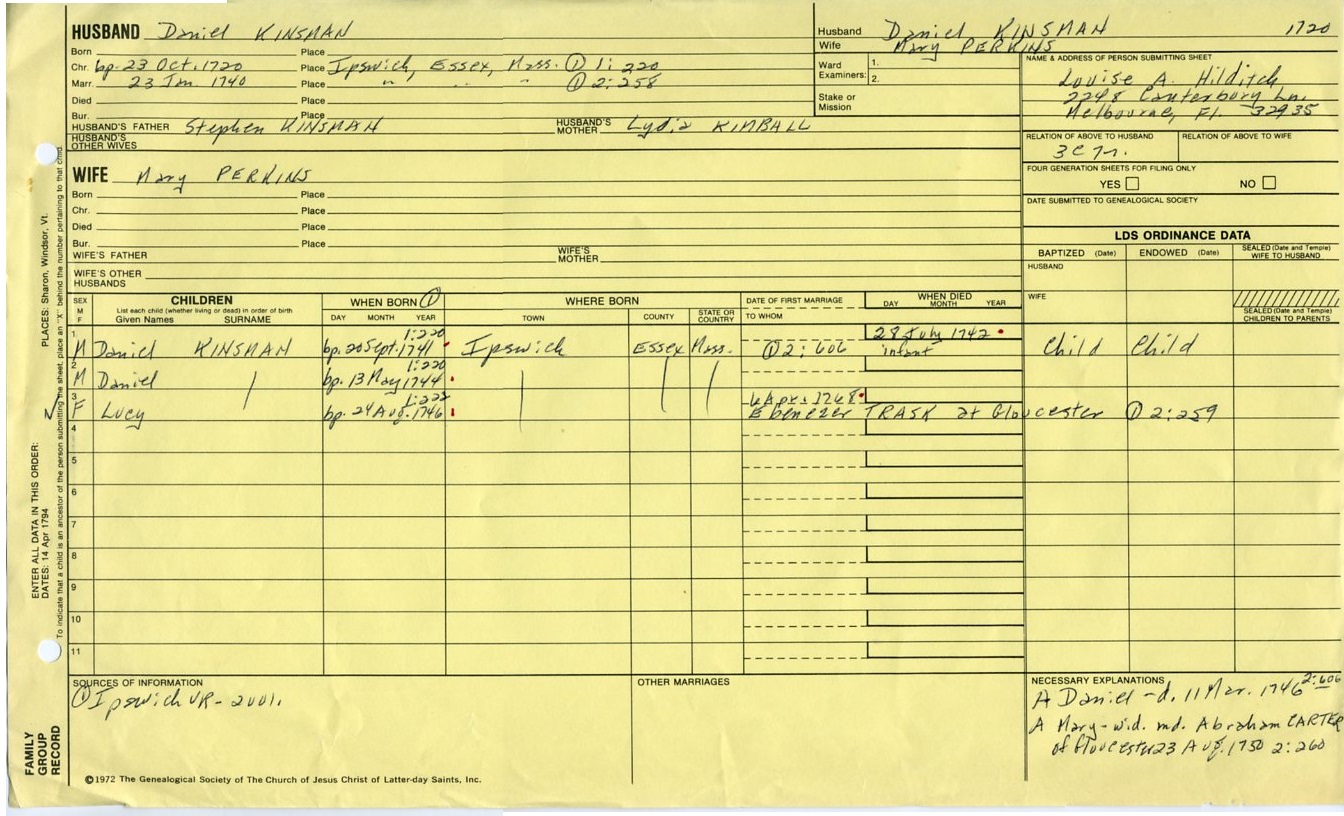 HUSBAND Daniel KINSMAN
Born Place
Chr. bp. 23 Oct. 1720 Place Ipswich, Essex, Mass. ① 1: 220
Marr. 23 Jan. 1740 Place " " ① 2: 258
Died Place
Bur. Place
HUSBAND'S FATHER Stephen KINSMAN HUSBAND'S MOTHER Lydia KIMBALL
HUSBAND'S OTHER WIVES
WIFE Mary PERKINS
Born Place
Chr. Place
Died Place
Bur. Place
WIFE'S FATHER WIFE'S MOTHER
WIFE'S OTHER HUSBANDS
Husband Daniel KINSMAN 1720
Wife Mary PERKINS
Ward Examiners: 1. 2.
Stake or Mission
NAME & ADDRESS OF PERSON SUBMITTING SHEET
Louise A. Hilditch
2248 Canterbury Ln.
Melbourne, Fl. 32935
RELATION OF ABOVE TO HUSBAND RELATION OF ABOVE TO WIFE
3C7r.
FOUR GENERATION SHEETS FOR FILING ONLY
YES NO
DATE SUBMITTED TO GENEALOGICAL SOCIETY
LDS ORDINANCE DATA
BAPTIZED (Date) ENDOWED (Date) SEALED (Date and Temple) WIFE TO HUSBAND
HUSBAND
WIFE
SEALED (Date and Temple) CHILDREN TO PARENTS
SEX M F CHILDREN WHEN BORN ① WHERE BORN DATE OF FIRST MARRIAGE WHEN DIED
List each child (whether living or dead) in order of birth
Given Names SURNAME DAY MONTH YEAR TOWN COUNTY STATE OR COUNTRY TO WHOM DAY MONTH YEAR
1 1:220 28 July 1742
M Daniel KINSMAN bp. 20 Sept. 1741 Ipswich Essex Mass. ① 2: 606 infant Child Child
2 1:220
M Daniel / bp. 13 May 1744
3 1:222 6 Apr. 1768
F Lucy bp. 24 Aug. 1746 Ebenezer TRASK at Gloucester ① 2:259
4
5
6
7
8
9
10
11
SOURCES OF INFORMATION
① Ipswich VR- 2001.
OTHER MARRIAGES
NECESSARY EXPLANATIONS
A Daniel - d. 11 Mar. 1746 2:606
A Mary - wid. md. Abraham CARTER
of Gloucester 23 Aug. 1750 2:260
©1972 The Genealogical Society of The Church of Jesus Christ of Latter-day Saints, Inc.
FAMILY GROUP RECORD
ENTER ALL DATA IN THIS ORDER:
DATES: 14 Apr 1794
PLACES: Sharon, Windsor, Vt.
To indicate that a child is an ancestor of the person submitting the sheet, place an "X" behind the number pertaining to that child.